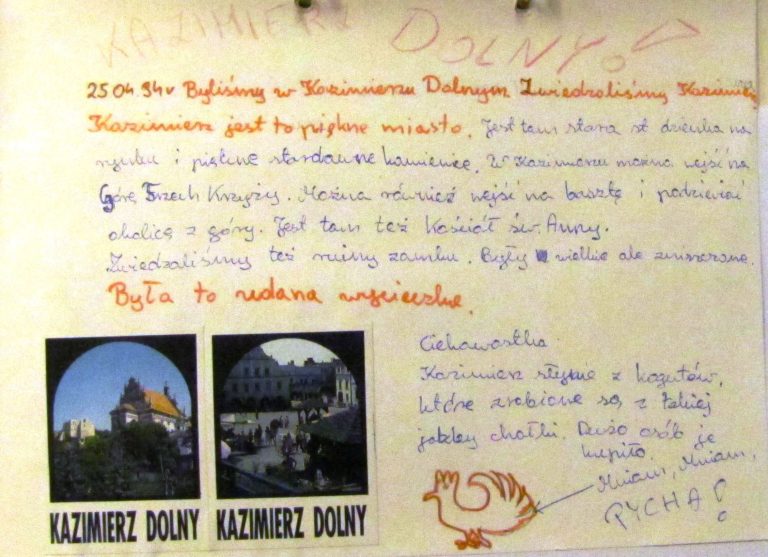 KAZIMIERZ DOLNY
25.04.94r Byliśmy w Kazimierzu Dolnym Zwiedzaliśmy Kazimierz
Kazimierz jest to piękne miasto. Jest tam stara studzienka na
rynku i piękne starodawne kamienice. W Kazimierzu można wejść na
Górę Trzech Krzyży. Można również wejść na basztę i podziewiać
okolicę z góry. Jest tam też Kościół św. Anny.
Zwiedzaliśmy też ruiny zamku. Były wielkie ale zniszczone.
Była to udana wycieczka.
Ciekawostka
Kazimierz słynie z kogutów,
które zrobione są z takiej
jakby chałki. Dużo osób je
kupiło.
Mniam, Mniam,
PYCHA!
KAZIMIERZ DOLNY
KAZIMIERZ DOLNY